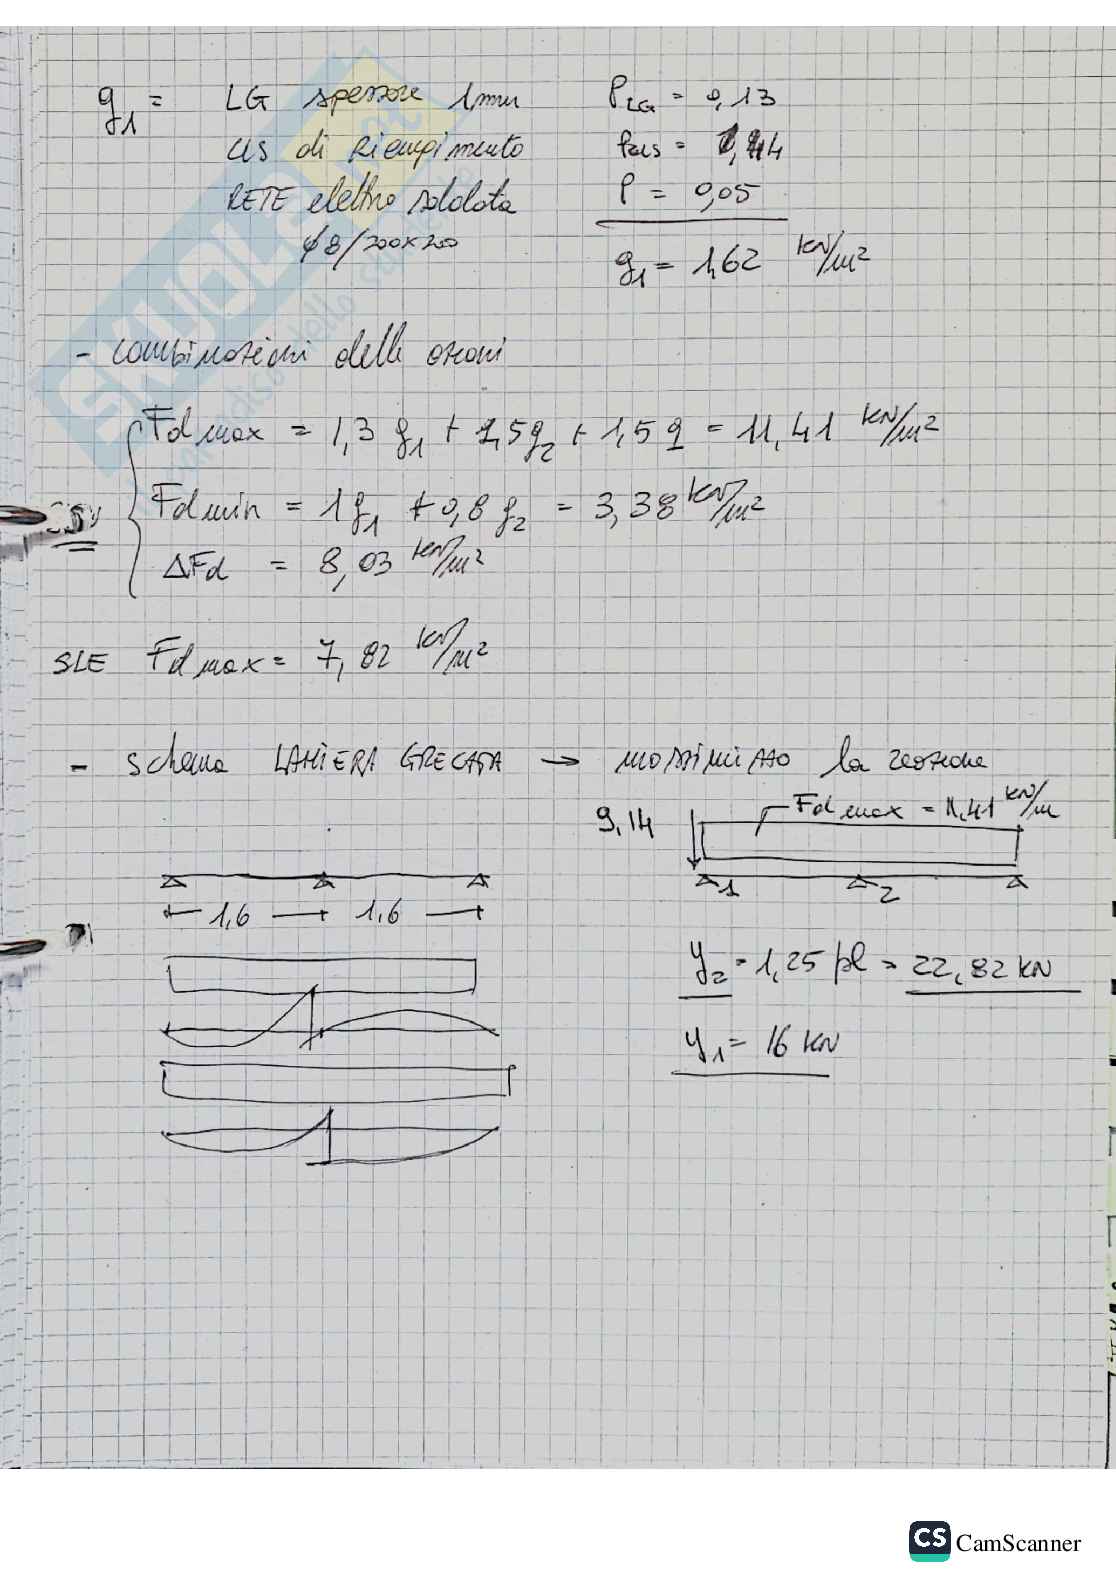 g1 = LG spessore 1mm PLG = 0,13
CLS di Riempimento PCLS = 1,44
RETE elettro saldata P = 0,05
φ8/200x200 g1 = 1,62 KN/m²
- combinazioni delle azioni
Fd max = 1,3 g1 + 1,5g2 + 1,5q = 11,41 KN/m²
Fd min = 1g1 + 0,8 g2 = 3,38 KN/m²
ΔFd = 8,03 KN/m²
SLE Fd max = 7,82 KN/m²
- schema LAMIERA GRECATA → massimizzo la reazione
9,14 Fd max = 11,41 KN/m
1 2
1,6 1,6
y2 = 1,25 pl = 22,82 KN
y1 = 16 KN
SKUOLA.net
CS CamScanner